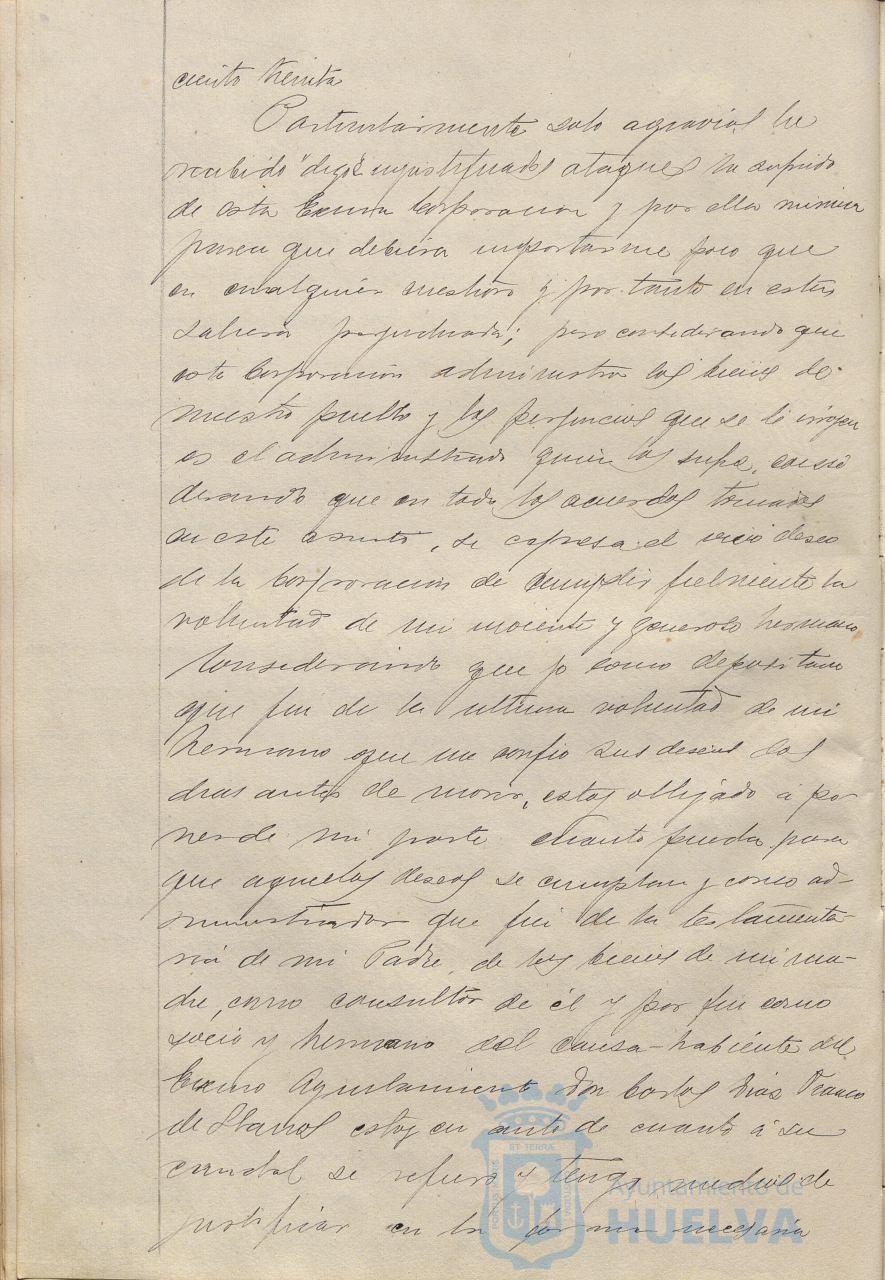 ciento treinta
Particularmente solo agravios he
recibido "digo" injustificados ataques he sufrido
de esta Excma Corporacion y por ella misma
parece que debiera importarme poco que
en cualquier cuestion y por tanto en esta
saliera perjudicada; pero considerando que
esta Corporacion administra los bienes de
nuestro pueblo y los perjuicios que se le irrogen
es el administrado quien los sufre, consi
derando que en todos los acuerdos tomados
en este asunto, se expresa el vivo deseo
de la Corporacion de cumplir fielmente la
voluntad de mi y generoso hermano
Considerando que yo como depositario
que fui de la ultima voluntad de mi
hermano que me confio sus deseos dos
dias antes de morir, estoy obligado á po
ner de mi parte cuanto pueda para
que aquellos deseos se cumplan y como ad-
ministrador que fui de la testamenta-
ria de mi Padre, de los bienes de mi ma-
dre, como consultor de él y por fin como
socio y hermano del causa-habiente del
Excmo Ayuntamiento Don Carlos Diaz Franco
de Llanos estoy en de cuanto á su
caudal se refiere y tengo medios de
justificar en la forma necesaria
Ayuntamiento de
HUELVA